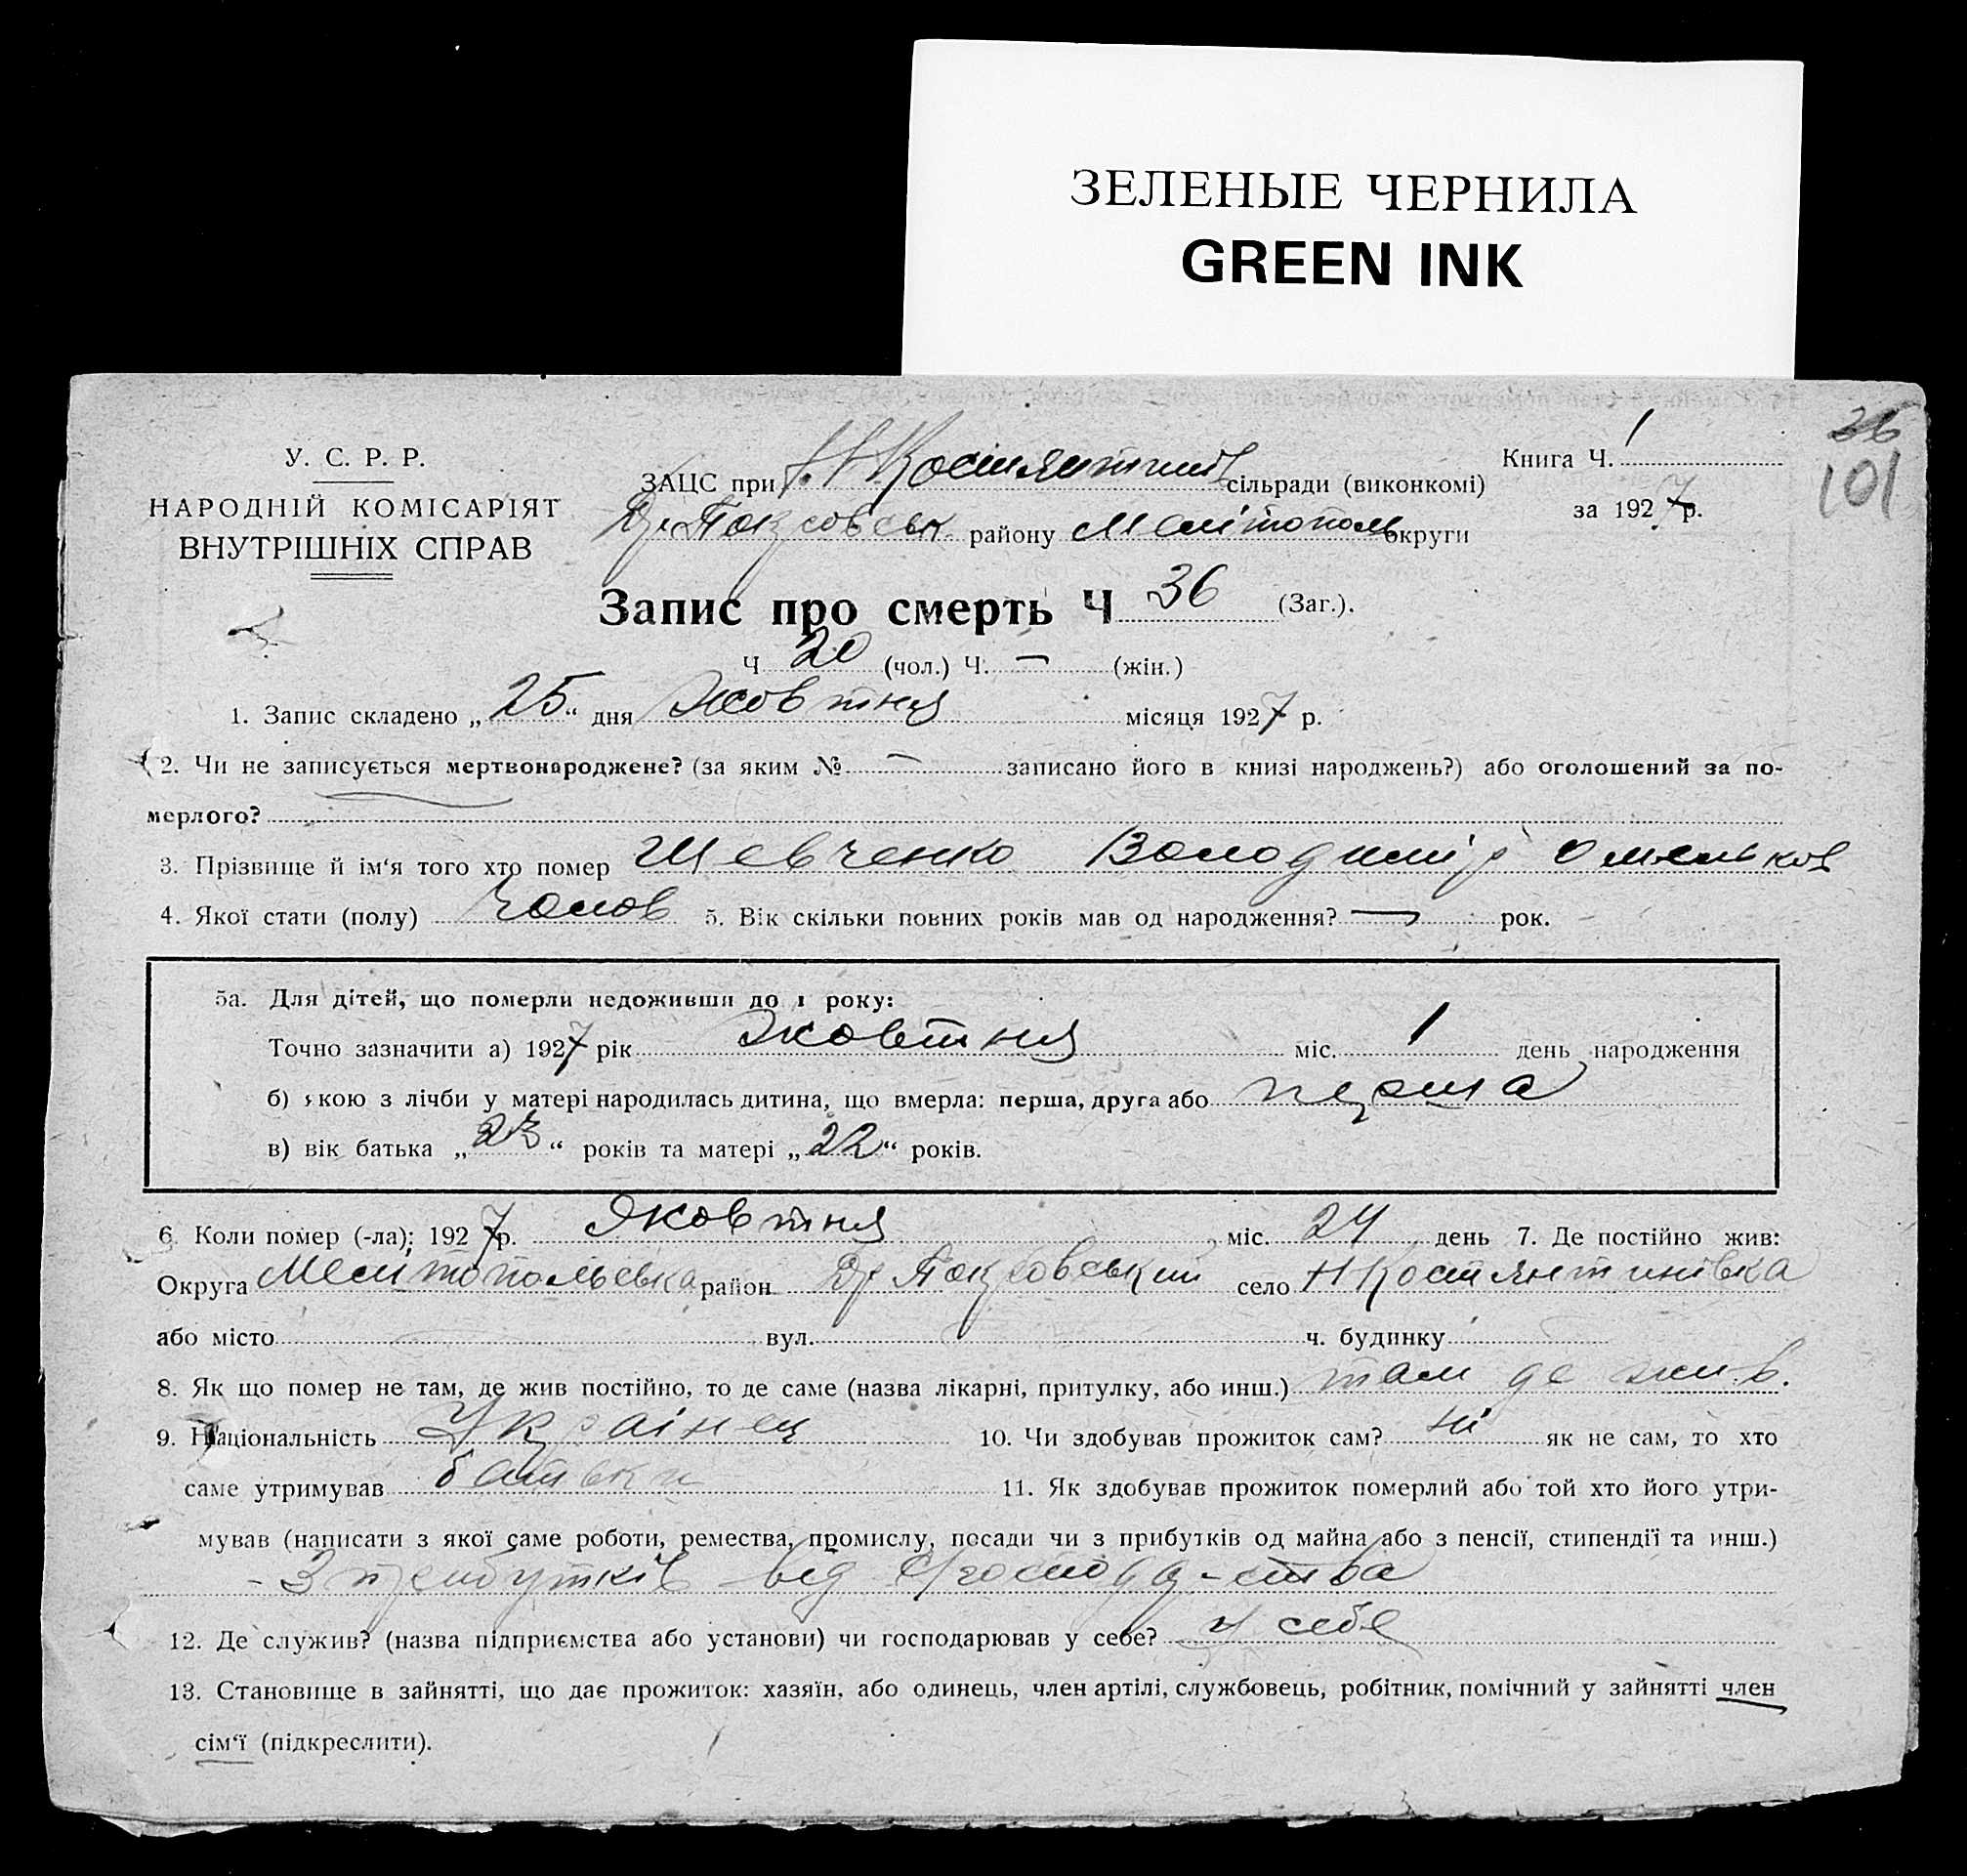 ЗЕЛЕНЫЕ ЧЕРНИЛА
GREEN INK
36
101
У. С. Р. Р.
НАРОДНІЙ КОМІСАРІЯТ
ВНУТРІШНІХ СПРАВ
ЗАЦС при Н Костянтинів сільради (виконкомі)
Покровськ району Мелітополь округи
Книга Ч. 1
за 1927 р.
Запис про смерть Ч 36 (Заг.).
Ч 20 (чол.) Ч. — (жін.)
1. Запис складено „25“ дня Жовтня місяця 1927 р.
2. Чи не записується мертвонароджене? (за яким № — записано його в книзі народжень?) або оголошений за по-
мерлого?
3. Прізвище й ім‘я того хто помер Шевченко Володимір Омельков
4. Якої стати (полу) Чолов 5. Вік скільки повних років мав од народження? — рок.
5а. Для дітей, що померли недоживши до 1 року:
Точно зазначити а) 1927 рік Жовтня міс. 1 день народження
б) якою з лічби у матері народилась дитина, що вмерла: перша, друга або перша
в) вік батька „23“ років та матері „22“ років.
6. Коли помер (-ла): 1927 р. Жовтня міс. 24 день 7. Де постійно жив:
Округа Мелітопольська район Покровський село Н Костянтинівка
або місто вул. ч. будинку
8. Як що помер не там, де жив постійно, то де саме (назва лікарні, притулку, або инш.) там де жив.
9. Національність Українець 10. Чи здобував прожиток сам? ні як не сам, то хто
саме утримував батьки 11. Як здобував прожиток померлий або той хто його утри-
мував (написати з якої саме роботи, ремества, промислу, посади чи з прибутків од майна або з пенсії, стипендії та инш.)
- З прибутків від
12. Де служив? (назва підприємства або установи) чи господарював у себе? у себе
13. Становище в зайнятті, що дає прожиток: хазяїн, або одинець, член артілі, службовець, робітник, помічний у зайнятті член
сім‘ї (підкреслити).